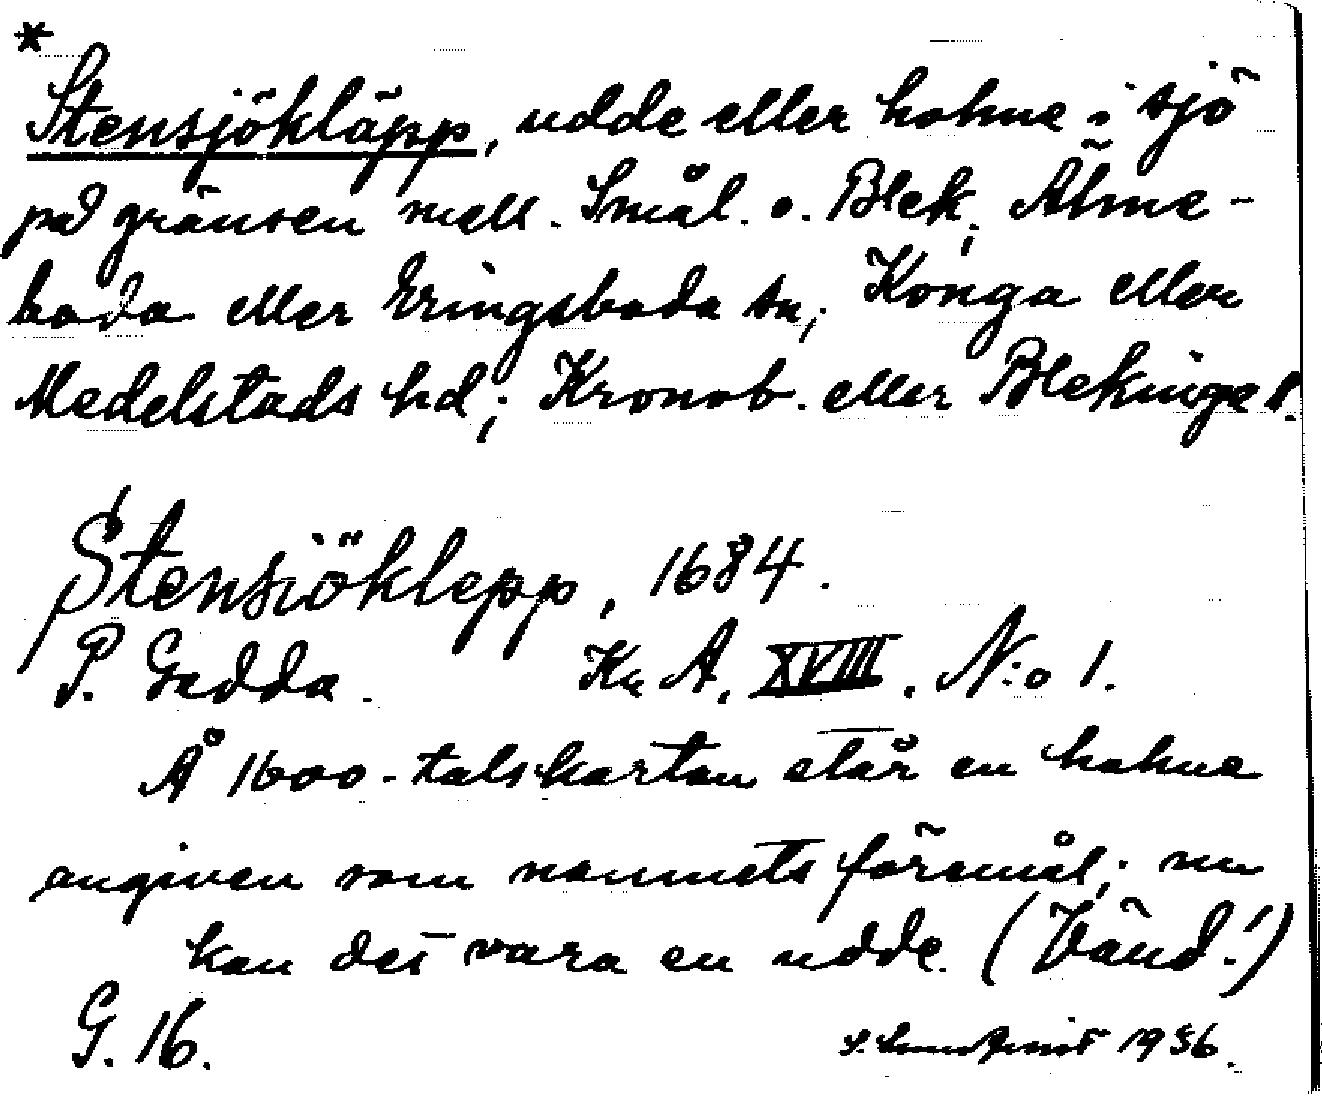 *
Stensjökläpp, udde eller holme i sjö
på gränsen mell. Smål. o. Blek; Älme-
boda eller Eringsboda sn; Konga eller
Medelstads hd; Kronob. eller Blekinge l.
Stensiöklepp, 1684.
P. Gedda. Kr A. XVIII. N:o 1.
Å 1600-talskartan står en holme
angiven som namnets föremål; nu
kan det vara en udde. (Vänd!)
G. 16.
1936.